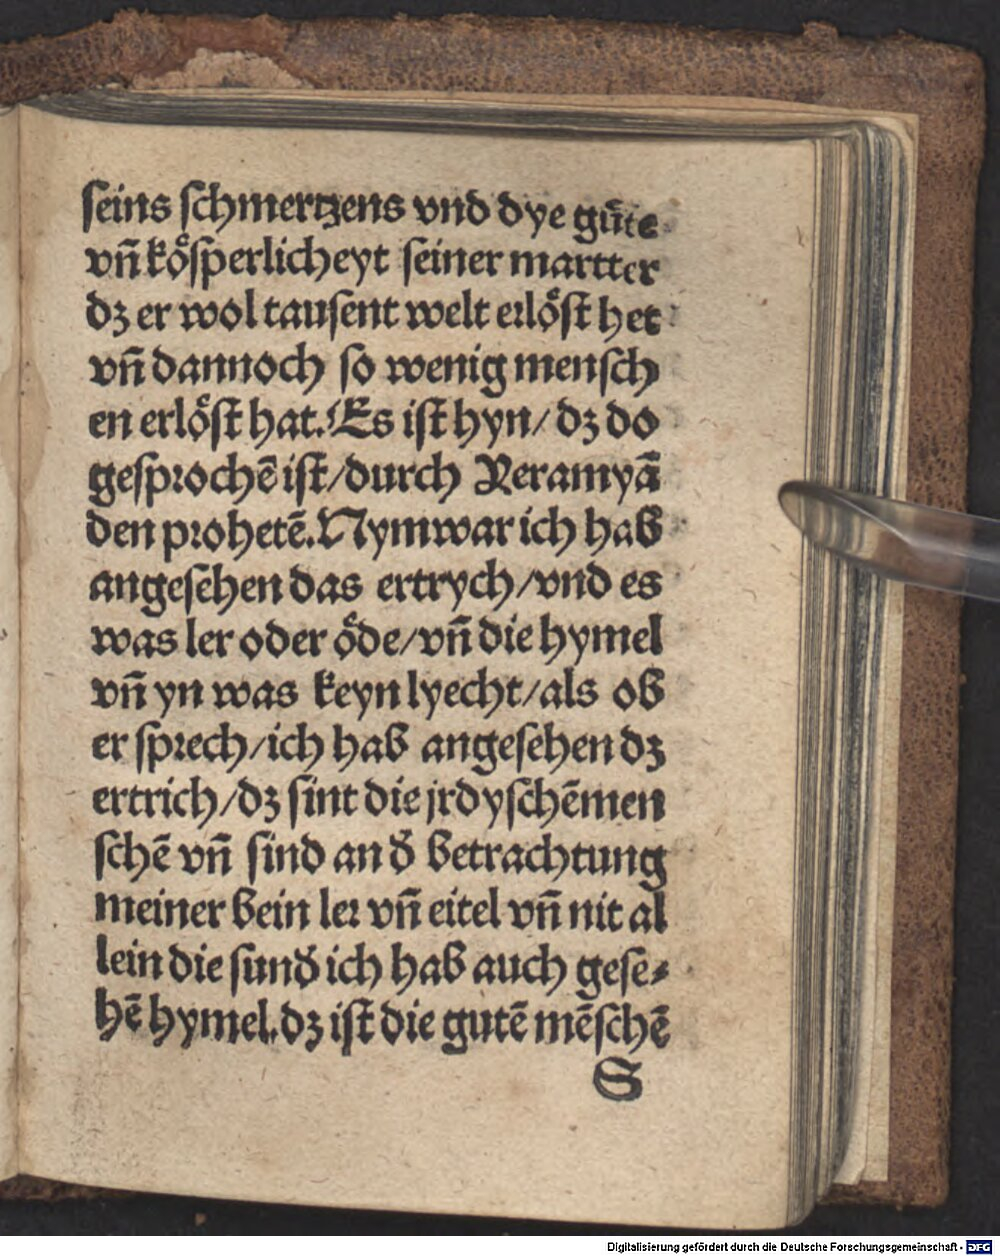 seins schmertzens vnd dye gůte
vn̄ koͤsperlicheyt seiner martter
dz er wol tausent welt erloͤst het
vn̄ dannoch so wenig mensch
en erloͤst hat. Es ist hyn/ dz do
gesprochē ist/durch Jeramyā
den prohetē. Nym war ich hab
angesehen das ertrych/vnd es
was ler oder oͤde/vn̄ die hymel
vn̄ yn was keyn lyecht/als ob
er sprech/ich hab angesehen dz
ertrich/dz sint die jrdyschēmen
schē vn̄ sind an đ betrachtung
meiner bein ler vn̄ eitel vn̄ nit al
lein die sunđ ich hab auch gese⸗
hē hymel. dz ist die gutē mēschē
S
Digitalisierung gefördert durch die Deutsche Forschungsgemeinschaft - DFG